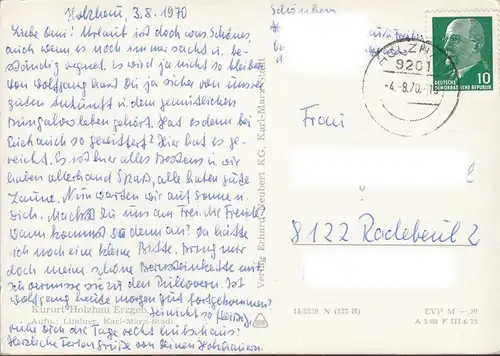 Holzhau, 3.8.1970
Liebe Omi! Urlaub ist doch was Schönes,
auch wenn es noch immer sacht u. be-
ständig regnet. Es wird ja nicht so bleiben
Von Wolfgang hast Du ja sicher von unserer
guten Ankunft u. dem gemütlichen
Bungalowleben gehört. Hat es denn bei
Euch auch so gewittert? Hier hat es ge-
reicht. Es ist hier alles Bestens u. wir
haben allerhand Spaß, alle haben gute
Laune. Nun warten wir auf Sonne u.
Dich. Machst Du uns am Frei. die Freude
Wann kommst Du denn an? Da hätte
ich noch eine kleine Bitte. Bring mir
doch meine schöne Bernsteinkette mit
Ist
Wolfgang heute morgen gut fortgekommen?
Sei nicht so fleißig,
ruhe Dich die Tage recht aus!
Herzliche Feriengrüße von Deinen Holzhauern.
Kurort Holzhau Erzgeb.
Aufn.: Lindner, Karl-Marx-Stadt
Verlag Erhard Neubert KG, Karl-Marx-Stadt
HOLZHAU
9201
-4.-8.70.
DEUTSCHE
DEMOKRATISCHE REPUBLIK
10
Frau
8122 Radebeul 2
14/2259 N (127 B)
EVP M -,20
A 3/68 F III 6 75